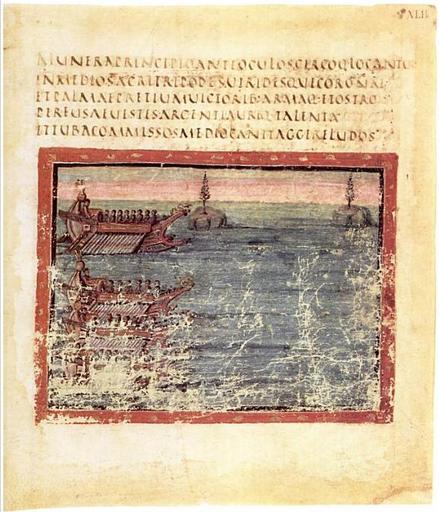 MUNERAPRINCIPIOANTEOCULOSCIRCOQ·LOCANTUR
INMEDIOSACRITRIPODESUIRIDESQUECORONAE
ETPALMAEPRETIUMUICTORIB·ARMAQ·ETOSTRO
PERFUSAEUESTES·ARGENTIAURIQ·TALENTA
ETTUBACOMMISSOSMEDIOCANITAGGERELUDOS